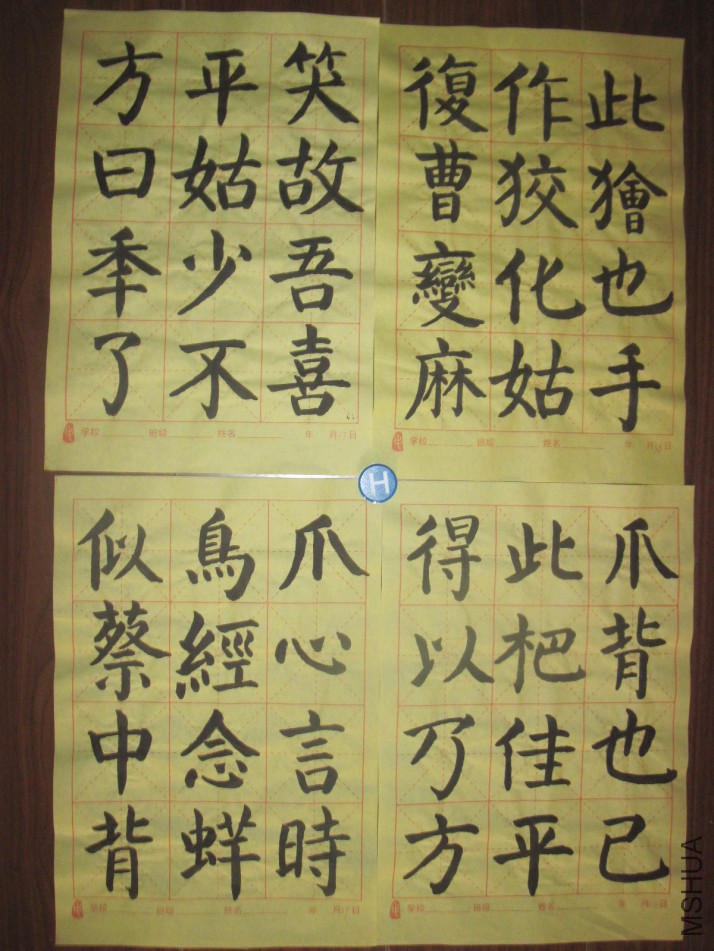 方平笑
曰姑故
秊少吾
了不喜
學校 班級 姓名 年 月 日
復作此
曹狡獪
變化也
麻姑手
學校 班級 姓名 年 月 日
H
似鳥爪
蔡經心
中念言
背蛘時
學校 班級 姓名 年 月 日
得此爪
以杷背
乃佳也
方平己
學校 班級 姓名 年 月 日
MSHUA